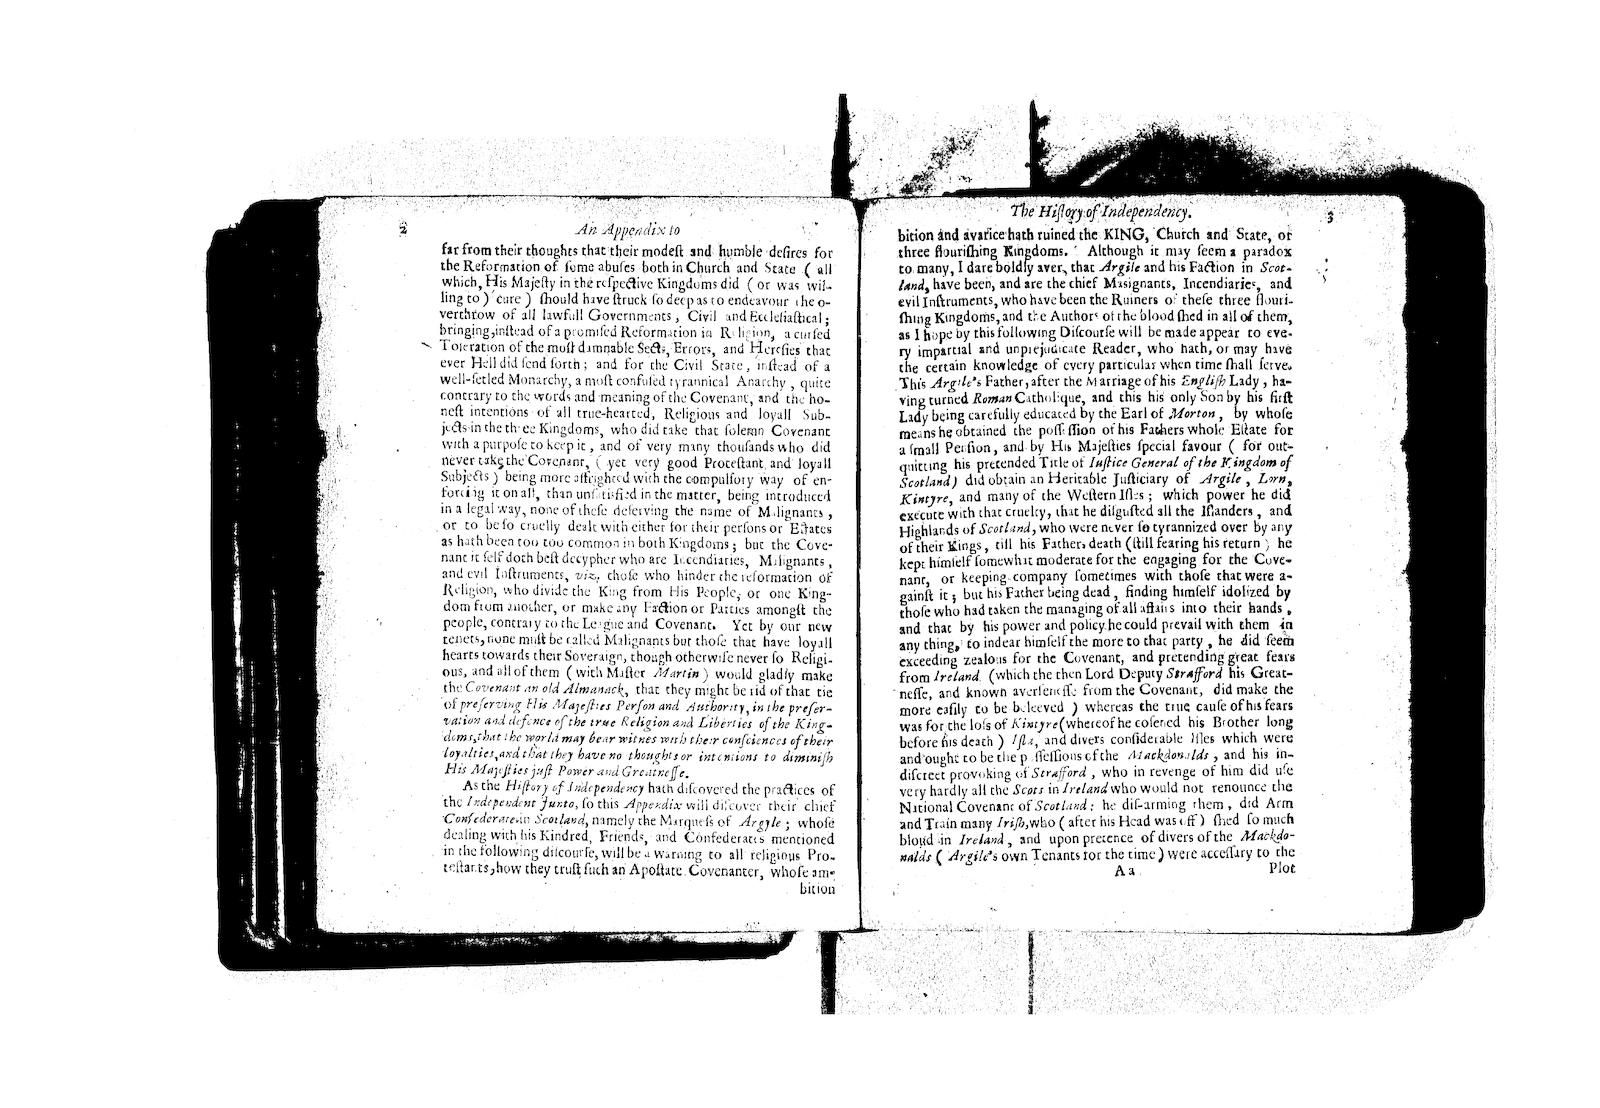 2
An Appendix to
far from their thoughts that their modeſt and humble deſires for
the Reformation of ſome abuſes both in Church and State ( all
which, His Majeſty in the reſpective Kingdoms did ( or was wil-
ling to ) cure ) ſhould have ſtruck ſo deep as to endeavour the o-
verthrow of all lawfull Governments, Civil and Eccleſiaſtical;
bringing, inſtead of a promiſed Reformation in Religion, a curſed
Toleration of the moſt damnable Sects, Errors, and Hereſies that
ever Hell did ſend forth; and for the Civil State, inſtead of a
well-ſetled Monarchy, a moſt confuſed tyrannical Anarchy, quite
contrary to the words and meaning of the Covenant, and the ho-
neſt intentions of all true-hearted, Religious and loyall Sub-
jects in the three Kingdoms, who did take that ſolemn Covenant
with a purpoſe to keep it, and of very many thouſands who did
never take the Covenant, ( yet very good Proteſtant and loyall
Subjects ) being more affrighted with the compulſory way of en-
forcing it on all, than unſatisfied in the matter, being introduced
in a legal way, none of theſe deſerving the name of Malignants,
or to be ſo cruelly dealt with either for their perſons or Eſtates
as hath been too too common in both Kingdoms; but the Cove-
nant it ſelf doth beſt decypher who are Incendiaries, Malignants,
and evil Inſtruments, viz. thoſe who hinder the reformation of
Religion, who divide the King from His People, or one King-
dom from another, or make any Faction or Parties amongſt the
people, contrary to the League and Covenant. Yet by our new
tenets, none muſt be called Malignants but thoſe that have loyall
hearts towards their Soveraign, though otherwiſe never ſo Religi-
ous, and all of them ( with Maſter Martin ) would gladly make
the Covenant an old Almanack, that they might be rid of that tie
of preſerving His Majeſties Perſon and Authority, in the preſer-
vation and defence of the true Religion and Liberties of the King-
doms, that the world may bear witnes with their conſciences of their
loyalties, and that they have no thoughts or intentions to diminiſh
His Majeſties juſt Power and Greatneſſe.
As the Hiſtory of Independency hath diſcovered the practices of
the Independent Junto, ſo this Appendix will diſcover their chief
Confederate in Scotland, namely the Marqueſs of Argyle; whoſe
dealing with his Kindred, Friends, and Confederates mentioned
in the following diſcourſe, will be a warning to all religious Pro-
teſtants, how they truſt ſuch an Apoſtate Covenanter, whoſe am-
bition
The Hiſtory of Independency.
3
bition and avarice hath ruined the KING, Church and State, or
three flouriſhing Kingdoms. Although it may ſeem a paradox
to many, I dare boldly aver, that Argile and his Faction in Scot-
land, have been, and are the chief Maſignants, Incendiaries, and
evil Inſtruments, who have been the Ruiners of theſe three flouri-
ſhing Kingdoms, and the Authors of the blood ſhed in all of them,
as I hope by this following Diſcourſe will be made appear to eve-
ry impartial and unprejudicate Reader, who hath, or may have
the certain knowledge of every particular when time ſhall ſerve.
This Argile's Father, after the Marriage of his Engliſh Lady, ha-
ving turned Roman Catholique, and this his only Son by his firſt
Lady being carefully educated by the Earl of Morton, by whoſe
means he obtained the poſſeſſion of his Fathers whole Eſtate for
a ſmall Penſion, and by His Majeſties ſpecial favour ( for out-
quitting his pretended Title of Iuſtice General of the Kingdom of
Scotland) did obtain an Heritable Juſticiary of Argile, Lorn,
Kintyre, and many of the Weſtern Iſles; which power he did
execute with that cruelty, that he diſguſted all the Iſlanders, and
Highlands of Scotland, who were never ſo tyrannized over by any
of their Kings, till his Fathers death (ſtill fearing his return ) he
kept himſelf ſomewhat moderate for the engaging for the Cove-
nant, or keeping company ſometimes with thoſe that were a-
gainſt it; but his Father being dead, finding himſelf idolized by
thoſe who had taken the managing of all affairs into their hands,
and that by his power and policy he could prevail with them in
any thing, to indear himſelf the more to that party, he did ſeem
exceeding zealous for the Covenant, and pretending great fears
from Ireland (which the then Lord Deputy Strafford his Great-
neſſe, and known averſeneſſe from the Covenant, did make the
more eaſily to be beleeved ) whereas the true cauſe of his fears
was for the loſs of Kintyre (whereof he coſened his Brother long
before his death ) Iſla, and divers conſiderable Iſles which were
and ought to be the poſſeſſions of the Mackdonalds, and his in-
diſcreet provoking of Strafford, who in revenge of him did uſe
very hardly all the Scots in Ireland who would not renounce the
National Covenant of Scotland: he diſ-arming them, did Arm
and Train many Iriſh, who ( after his Head was off ) ſhed ſo much
bloud in Ireland, and upon pretence of divers of the Mackdo-
nalds ( Argile's own Tenants for the time ) were acceſſary to the
Aa
Plot